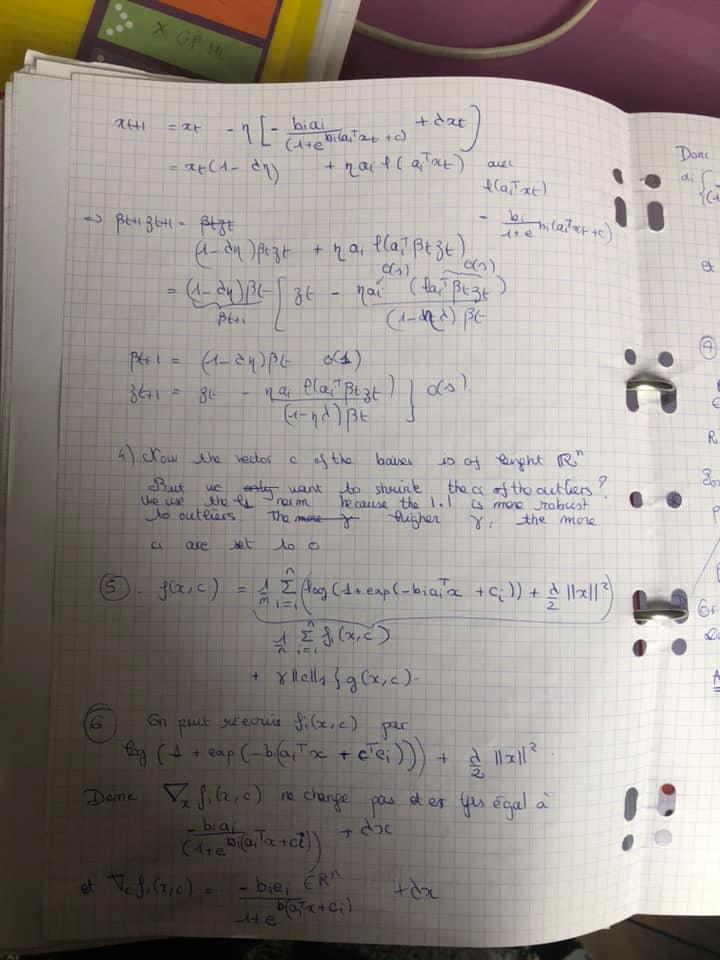 X GP M
x_{t+1} = x_t - η [ - b_i a_i / (1+e^{b_i(a_i^T x_t + c)}) + λx_t ]
= x_t(1 - λη) + η a_i l(a_i^T x_t) avec
l(a_i^T x_t)
- b_i / (1+e^{b_i(a_i^T x_t + c)})
⇒ β_{t+1} z_{t+1} = β_t z_t
(1 - λη) β_t z_t + η a_i l(a_i^T β_t z_t)
= (1 - λη) β_t [ z_t - η a_i (l a_i^T β_t z_t) / ((1 - ηλ) β_t)
β_{t+1} O(s) O(s)
β_{t+1} = (1 - λη) β_t O(1)
z_{t+1} = z_t - η a_i l(a_i^T β_t z_t) / ((1 - ηλ) β_t) } O(s)
4) Now the vector c of the baises is of lenght ℝ^n
But we only want to shrink the c_i of the outliers?
We use the l_1 norm because the |.| is more robust
to outliers. The more γ higher γ, the more
c_i are set to 0
5. f(x,c) = 1/n Σ_{i=1}^n (log(1+exp(-b_i a_i^T x + c_i)) + λ/2 ||x||²)
1/n Σ_{i=1}^n f_i(x,c)
+ γ||c||_1 } g(x,c).
6 On peut réecrire f_i(x,c) par
log (1 + exp(-b_i(a_i^T x + c^T e_i))) + λ/2 ||x||².
Donc ∇_x f_i(x,c) ne change pas et est tjrs égal à
-b_i a_i / (1+e^{b_i(a_i^T x + c_i)}) + λx
et ∇_c f_i(x,c) = -b_i e_i ∈ℝ^n / 1+e^{b_i(a_i^T x + c_i)} + λx
Donc
a_i {
et